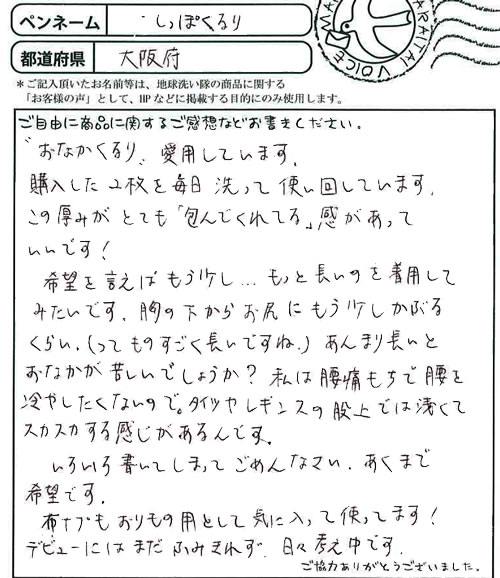 ペンネーム しっぽくるり
都道府県 大阪府
＊ご記入頂いたお名前等は、地球洗い隊の商品に関する
「お客様の声」として、HPなどに掲載する目的にのみ使用します。
ARAITAI VOICE
ご自由に商品に関するご感想などお書きください。
“おなかくるり”愛用しています。
購入した2枚を毎日洗って使い回しています。
この厚みがとても「包んでくれてる」感があって
いいです！
希望を言えばもう少し…もっと長いのを着用して
みたいです。胸の下からお尻にもう少しかぶる
くらい。（ってものすごく長いですね。）あんまり長いと
おなかが苦しいでしょうか？私は腰痛もちで腰を
冷やしたくないので。タイツやレギンスの股上では浅くて
スカスカする感じがあるんです。
いろいろ書いてしまってごめんなさい。あくまで
希望です。
布ナプもおりもの用として気に入って使ってます！
デビューにはまだふみきれず、日々考え中です。
ご協力ありがとうございました。